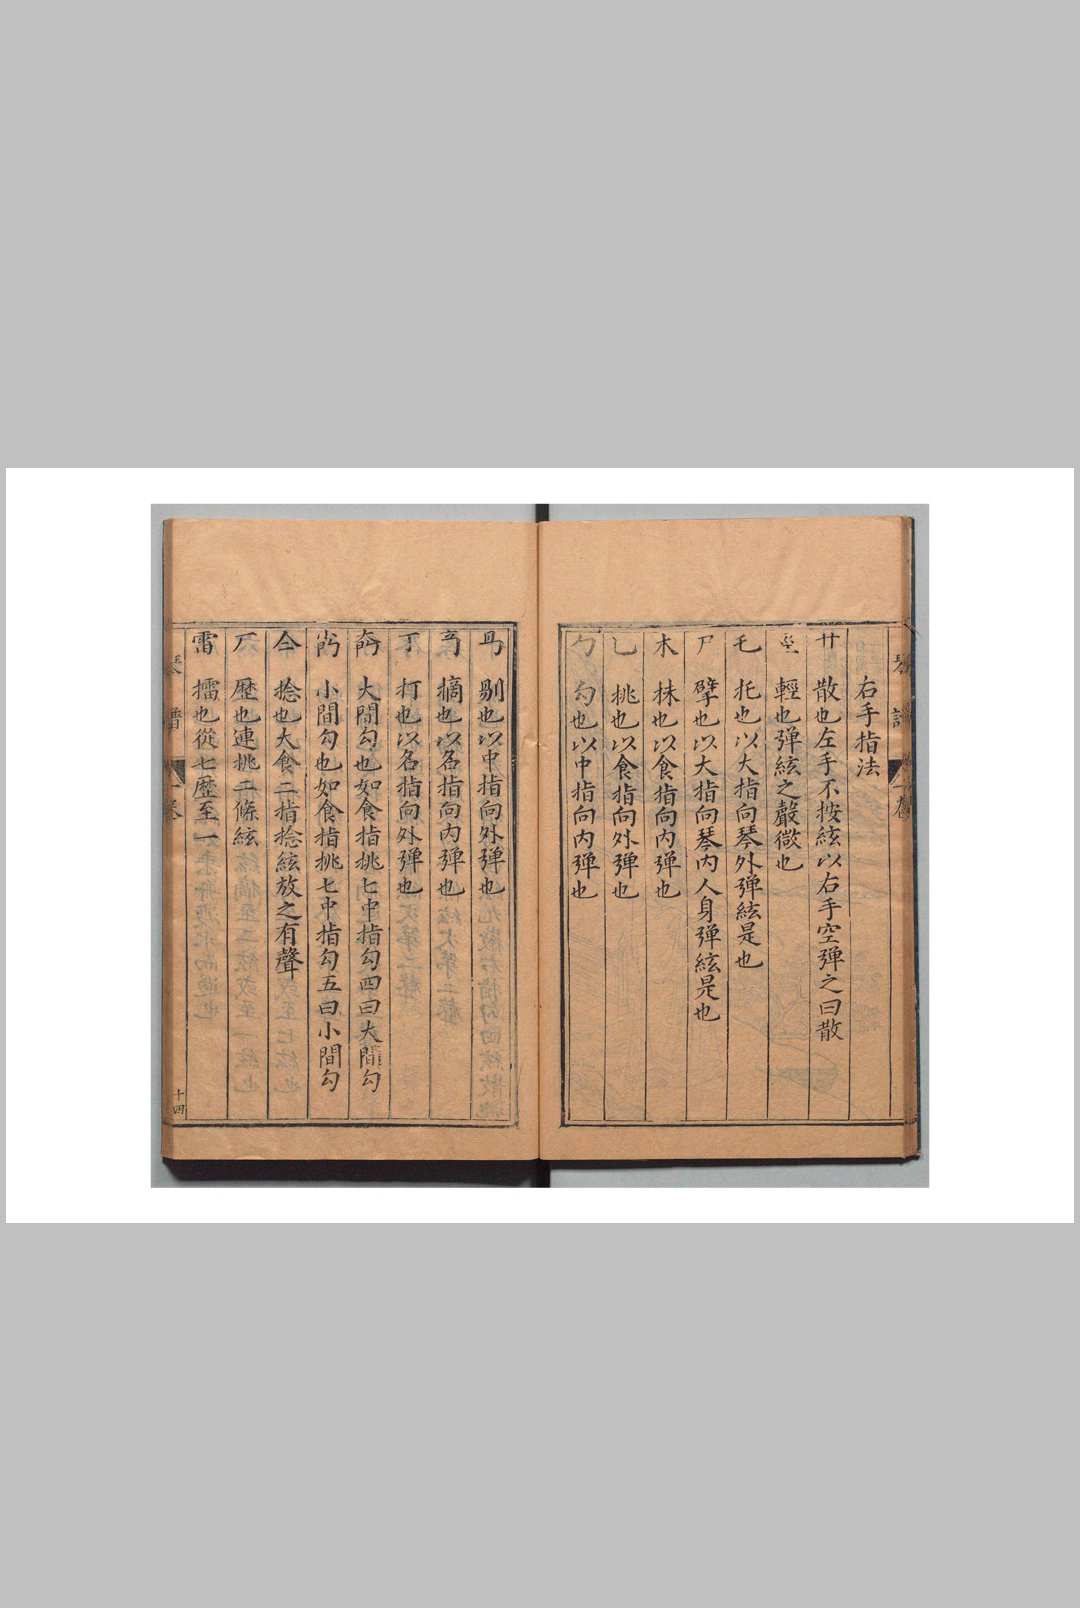 右手指法
艹 散也左手不按絃以右手空彈之曰散
𡉄 輕也弹絃之聲微也
乇 托也以大指向琴外弹絃是也
尸 擘也以大指向琴内人身弹絃是也
木 抹也以食指向内弹也
乚 挑也以食指向外弹也
勹 勾也以中指向内弹也
剔也以中指向外弹也
摘也以名指向内弹也
丁 打也以名指向外弹也
大間勾也如食指挑七中指勾四曰大間勾
小間勾也如食指挑七中指勾五曰小間勾
捻也大食二指捻絃放之有聲
厂 歷也連挑二條絃
雷 擂也從七歷至一
琴譜 一卷
十四